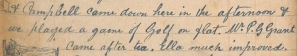 & Campbell came down here in the afternoon &
we played a game of Golf on flat. Mr. P. G. Grant
came after tea. Ella much improved.